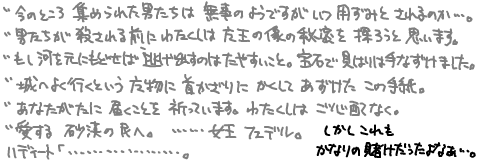 "今のところ 集められた男たちは 無事のようですが いつ用ずみとされるのか…。
"男たちが 殺される前に わたくしは 左王の俵の秘密を 探ろうと思います。
"もし 河を元にもどせば 逃げ出すのはたやすいこと。宝石で見はりは手なずけました。
"城へよく行くという 友物に 首かざりに かくして あずけた この手紙。
"あなたがたに 届くことを 祈っています。わたくしは ご心配なく。
"愛する 砂漠の民へ。 ……女王 フェデル。 しかし これも
ハディート「………………。 かなりの賭けだったよなあ…。